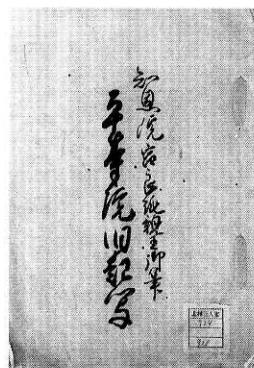 知恩院宮良純親王御筆
平等院旧記写